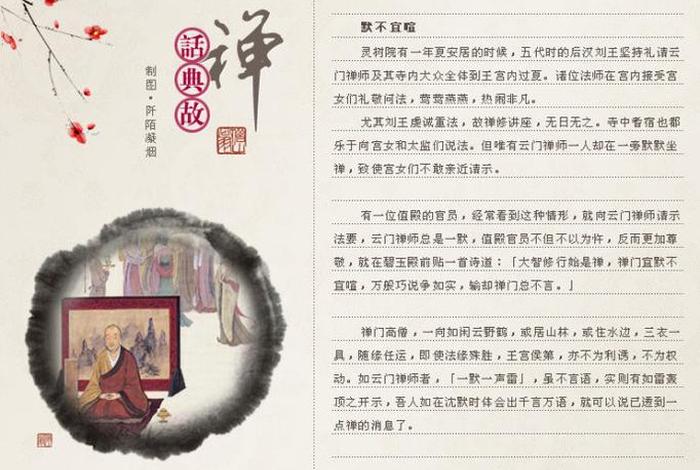 禅
話典故
制图·阡陌凝烟
默不宜喧
灵树院有一年夏安居的时候，五代时的后汉刘王坚持礼请云
门禅师及其寺内大众全体到王宫内过夏。诸位法师在宫内接受宫
女们礼敬问法，莺莺燕燕，热闹非凡。
尤其刘王虔诚重法，故禅修讲座，无日无之。寺中耆宿也都
乐于向宫女和太监们说法。但唯有云门禅师一人却在一旁默默坐
禅，致使宫女们不敢亲近请示。
有一位值殿的官员，经常看到这种情形，就向云门禅师请示
法要，云门禅师总是一默，值殿官员不但不以为忤，反而更加尊
敬，就在碧玉殿前贴一首诗道：「大智修行始是禅，禅门宜默不
宜喧，万般巧说争如实，输却禅门总不言。」
禅门高僧，一向如闲云野鹤，或居山林，或住水边，三衣一
具，随缘任运，即使法缘殊胜，王宫侯第，亦不为利诱，不为权
动。如云门禅师者，「一默一声雷」，虽不言语，实则有如雷轰
顶之开示，吾人如在沈默时体会出千言万语，就可以说已透到一
点禅的消息了。